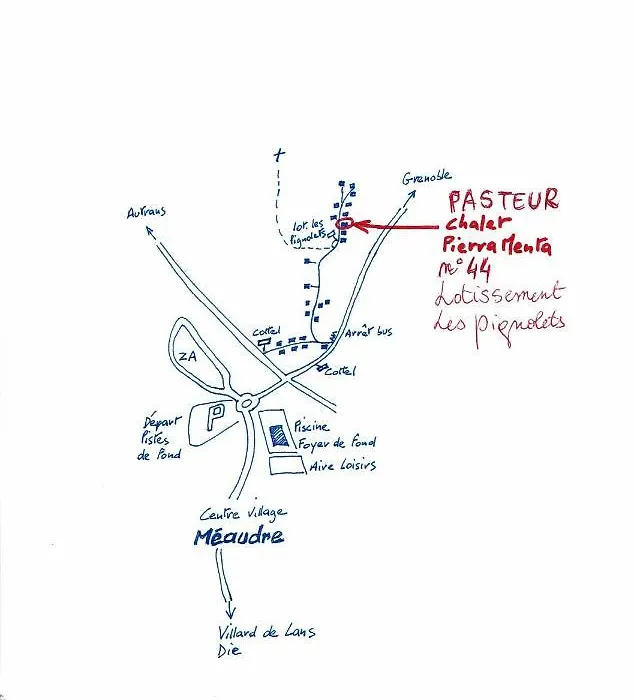 Grenoble
Autrans
PASTEUR
chalet
Pierra Menta
n° 44
Lotissement
Les Pignolets
lot. les
Pignolets
Cottel
Arrêt bus
ZA
Cottel
P
Départ
Pistes
de Fond
Piscine
Foyer de Fond
Aire Loisirs
Centre village
Méaudre
Villard de Lans
Die